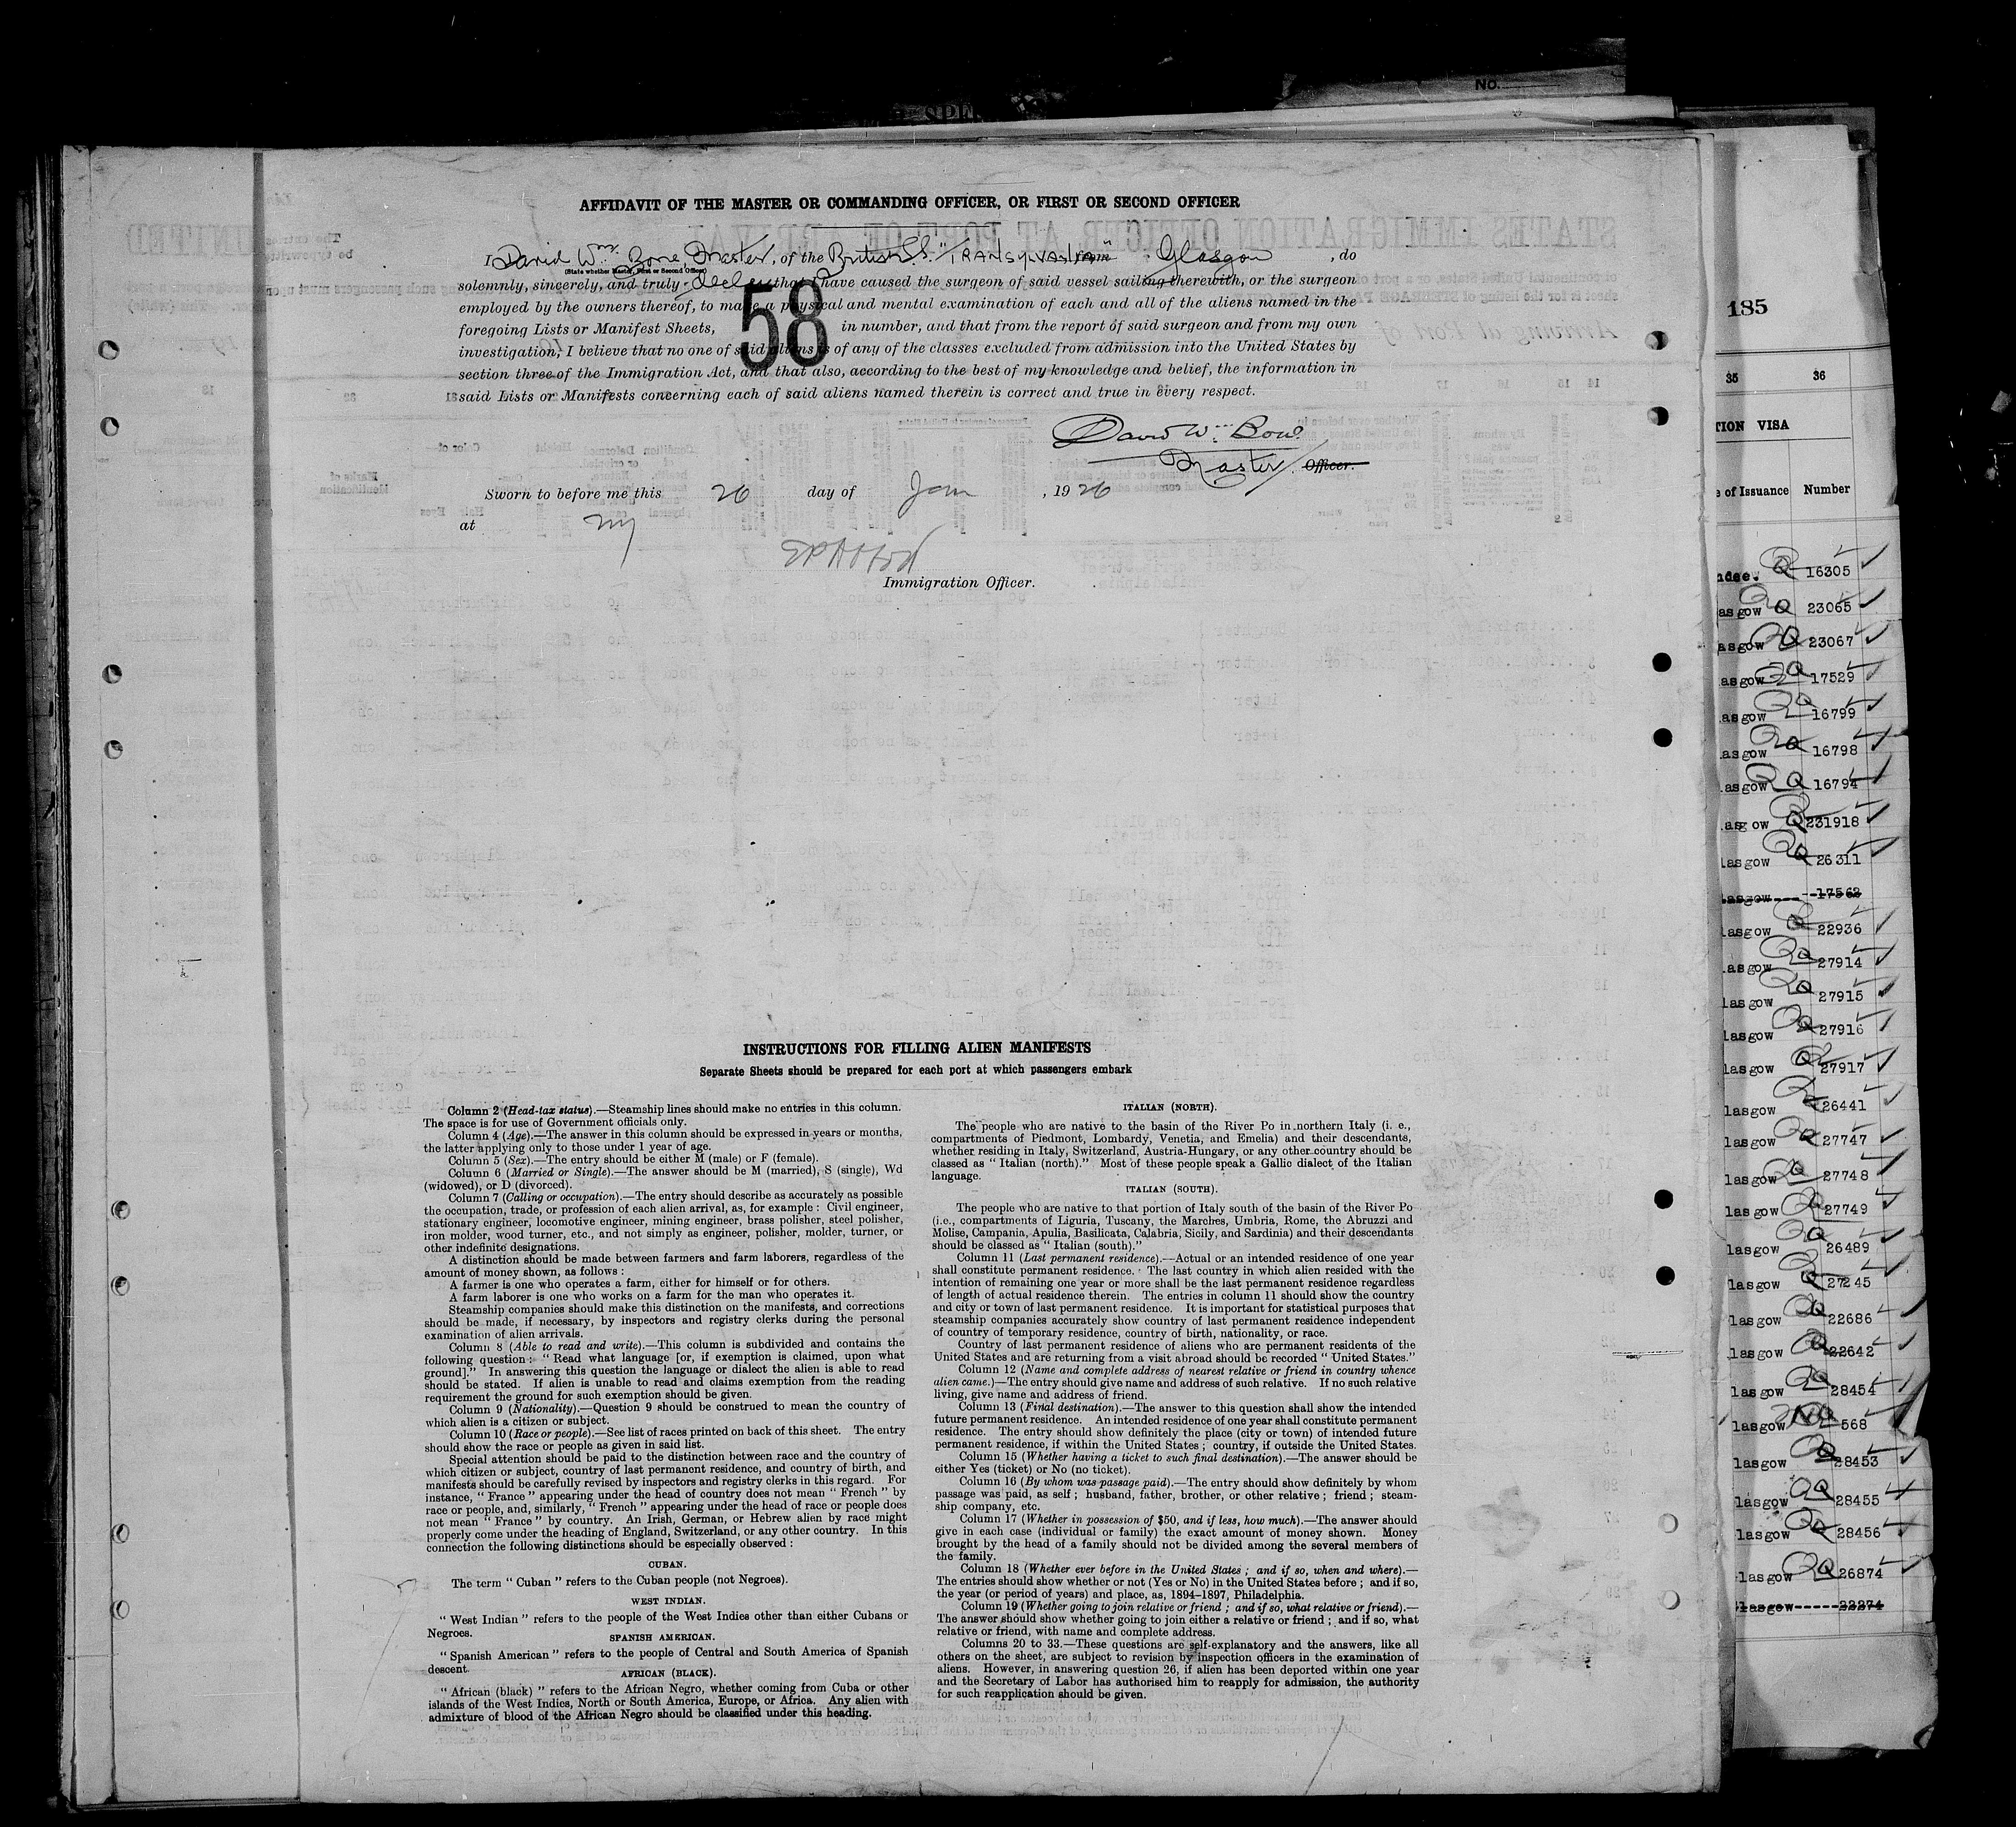 No.
AFFIDAVIT OF THE MASTER OR COMMANDING OFFICER, OR FIRST OR SECOND OFFICER
I David Wm. Bone, Master, of the British SS. "TRANSYLVANIA" from Glasgow, do
(State whether Master, First or Second Officer)
solemnly, sincerely, and truly that I have caused the surgeon of said vessel sailing therewith, or the surgeon
employed by the owners thereof, to make a physical and mental examination of each and all of the aliens named in the
foregoing Lists or Manifest Sheets, 58 in number, and that from the report of said surgeon and from my own
investigation, I believe that no one of said aliens is of any of the classes excluded from admission into the United States by
section three of the Immigration Act, and that also, according to the best of my knowledge and belief, the information in
said Lists or Manifests concerning each of said aliens named therein is correct and true in every respect.
David Wm. Bone
Master Officer.
Sworn to before me this 26 day of Jan, 1926
at NY
Immigration Officer.
INSTRUCTIONS FOR FILLING ALIEN MANIFESTS
Separate Sheets should be prepared for each port at which passengers embark
Column 2 (Head-tax status).—Steamship lines should make no entries in this column.
The space is for use of Government officials only.
Column 4 (Age).—The answer in this column should be expressed in years or months,
the latter applying only to those under 1 year of age.
Column 5 (Sex).—The entry should be either M (male) or F (female).
Column 6 (Married or Single).—The answer should be M (married), S (single), Wd
(widowed), or D (divorced).
Column 7 (Calling or occupation).—The entry should describe as accurately as possible
the occupation, trade, or profession of each alien arrival, as, for example : Civil engineer,
stationary engineer, locomotive engineer, mining engineer, brass polisher, steel polisher,
iron molder, wood turner, etc., and not simply as engineer, polisher, molder, turner, or
other indefinite designations.
A distinction should be made between farmers and farm laborers, regardless of the
amount of money shown, as follows :
A farmer is one who operates a farm, either for himself or for others.
A farm laborer is one who works on a farm for the man who operates it.
Steamship companies should make this distinction on the manifests, and corrections
should be made, if necessary, by inspectors and registry clerks during the personal
examination of alien arrivals.
Column 8 (Able to read and write).—This column is subdivided and contains the
following question : " Read what language [or, if exemption is claimed, upon what
ground]." In answering this question the language or dialect the alien is able to read
should be stated. If alien is unable to read and claims exemption from the reading
requirement the ground for such exemption should be given.
Column 9 (Nationality).—Question 9 should be construed to mean the country of
which alien is a citizen or subject.
Column 10 (Race or people).—See list of races printed on back of this sheet. The entry
should show the race or people as given in said list.
Special attention should be paid to the distinction between race and the country of
which citizen or subject, country of last permanent residence, and country of birth, and
manifests should be carefully revised by inspectors and registry clerks in this regard. For
instance, " France " appearing under the head of country does not mean " French " by
race or people, and, similarly, " French " appearing under the head of race or people does
not mean " France " by country. An Irish, German, or Hebrew alien by race might
properly come under the heading of England, Switzerland, or any other country. In this
connection the following distinctions should be especially observed :
CUBAN.
The term " Cuban " refers to the Cuban people (not Negroes).
WEST INDIAN.
" West Indian " refers to the people of the West Indies other than either Cubans or
Negroes.
SPANISH AMERICAN.
" Spanish American " refers to the people of Central and South America of Spanish
descent.
AFRICAN (BLACK).
" African (black) " refers to the African Negro, whether coming from Cuba or other
islands of the West Indies, North or South America, Europe, or Africa. Any alien with
admixture of blood of the African Negro should be classified under this heading.
ITALIAN (NORTH).
The people who are native to the basin of the River Po in northern Italy (i. e.,
compartments of Piedmont, Lombardy, Venetia, and Emelia) and their descendants,
whether residing in Italy, Switzerland, Austria-Hungary, or any other country should be
classed as " Italian (north)." Most of these people speak a Gallic dialect of the Italian
language.
ITALIAN (SOUTH).
The people who are native to that portion of Italy south of the basin of the River Po
(i.e., compartments of Liguria, Tuscany, the Marches, Umbria, Rome, the Abruzzi and
Molise, Campania, Apulia, Basilicata, Calabria, Sicily, and Sardinia) and their descendants
should be classed as " Italian (south)."
Column 11 (Last permanent residence).—Actual or an intended residence of one year
shall constitute permanent residence. The last country in which alien resided with the
intention of remaining one year or more shall be the last permanent residence regardless
of length of actual residence therein. The entries in column 11 should show the country
and city or town of last permanent residence. It is important for statistical purposes that
steamship companies accurately show country of last permanent residence independent
of country of temporary residence, country of birth, nationality, or race.
Country of last permanent residence of aliens who are permanent residents of the
United States and are returning from a visit abroad should be recorded " United States."
Column 12 (Name and complete address of nearest relative or friend in country whence
alien came.)—The entry should give name and address of such relative. If no such relative
living, give name and address of friend.
Column 13 (Final destination).—The answer to this question shall show the intended
future permanent residence. An intended residence of one year shall constitute permanent
residence. The entry should show definitely the place (city or town) of intended future
permanent residence, if within the United States ; country, if outside the United States.
Column 15 (Whether having a ticket to such final destination).—The answer should be
either Yes (ticket) or No (no ticket).
Column 16 (By whom was passage paid).—The entry should show definitely by whom
passage was paid, as self ; husband, father, brother, or other relative ; friend ; steam-
ship company, etc.
Column 17 (Whether in possession of $50, and if less, how much).—The answer should
give in each case (individual or family) the exact amount of money shown. Money
brought by the head of a family should not be divided among the several members of
the family.
Column 18 (Whether ever before in the United States ; and if so, when and where).—
The entries should show whether or not (Yes or No) in the United States before ; and if so,
the year (or period of years) and place, as, 1894–1897, Philadelphia.
Column 19 (Whether going to join relative or friend ; and if so, what relative or friend).—
The answer should show whether going to join either a relative or friend ; and if so, what
relative or friend, with name and complete address.
Columns 20 to 33.—These questions are self-explanatory and the answers, like all
others on the sheet, are subject to revision by inspection officers in the examination of
aliens. However, in answering question 26, if alien has been deported within one year
and the Secretary of Labor has authorised him to reapply for admission, the authority
for such reapplication should be given.
185
35 36
TION VISA
e of Issuance Number
ndee. Q 16305
asgow Q 23065
asgow Q 23067
asgow Q 17529
asgow Q 16799
asgow Q 16798
asgow Q 16794
asgow Q 231918
lasgow Q 26311
lasgow 17562
lasgow Q 22936
lasgow Q 27914
lasgow Q 27915
lasgow Q 27916
lasgow Q 27917
lasgow Q 26441
lasgow Q 27747
lasgow Q 27748
lasgow Q 27749
lasgow Q 26489
lasgow Q 27245
lasgow Q 22686
lasgow Q 22642
lasgow Q 28454
lasgow NQ 568
lasgow Q 28453
lasgow Q 28455
lasgow Q 28456
lasgow Q 26874
lasgow 22274